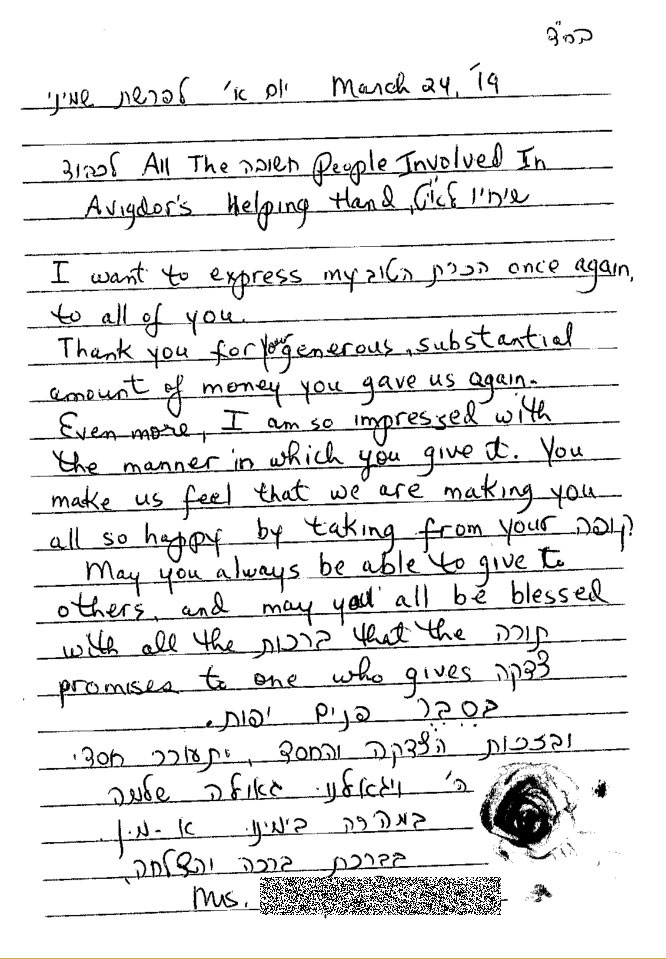 בס"ד
יום א' לפרשת שמיני March 24, '19
לכבוד All The חשובה People Involved In
Avigdor's Helping Hand, שיחיו לאוי"ט
I want to express my הכרת הטוב once again,
to all of you.
Thank you for your generous, substantial
amount of money you gave us again.
Even more, I am so impressed with
the manner in which you give it. You
make us feel that we are making you
all so happy by taking from your קופה?
May you always be able to give to
others, and may you all be blessed
with all the ברכות that the תורה
promises to one who gives צדקה
בסבר פנים יפות.
ובזכות הצדקה והחסד, יתעורר חסדי
ה' ויגאלנו גאולה שלמה
במהרה בימינו א-מן.
בברכת ברכה והצלחה,
Mrs.